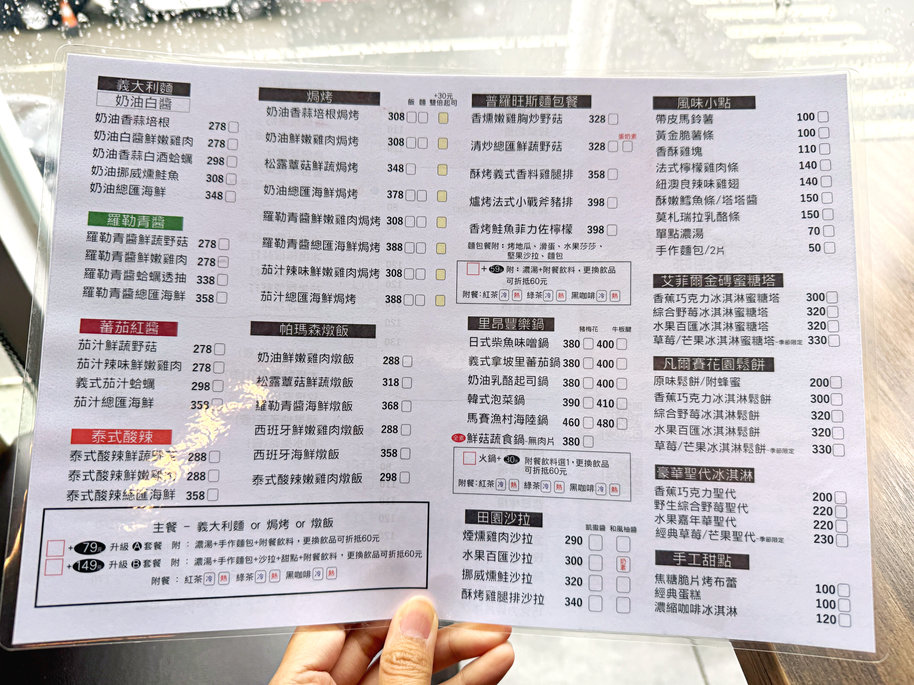 義大利麵
奶油白醬
奶油香蒜培根 278
奶油白醬鮮嫩雞肉 278
奶油香蒜白酒蛤蠣 298
奶油挪威燻鮭魚 308
奶油總匯海鮮 348
羅勒青醬
羅勒青醬鮮蔬野菇 278
羅勒青醬鮮嫩雞肉 278
羅勒青醬蛤蠣透抽 338
羅勒青醬總匯海鮮 358
蕃茄紅醬
茄汁鮮蔬野菇 278
茄汁辣味鮮嫩雞肉 278
義式茄汁蛤蠣 298
茄汁總匯海鮮 358
泰式酸辣
泰式酸辣鮮蔬野菇 288
泰式酸辣鮮嫩雞肉 288
泰式酸辣總匯海鮮 358
焗烤
飯 麵 +30元 雙倍起司
奶油香蒜培根焗烤 308
奶油鮮嫩雞肉焗烤 308
松露蕈菇鮮蔬焗烤 348
奶油總匯海鮮焗烤 378
羅勒青醬鮮嫩雞肉焗烤 308
羅勒青醬總匯海鮮焗烤 388
茄汁辣味鮮嫩雞肉焗烤 308
茄汁總匯海鮮焗烤 388
帕瑪森燉飯
奶油鮮嫩雞肉燉飯 288
松露蕈菇鮮蔬燉飯 318
羅勒青醬海鮮燉飯 368
西班牙鮮嫩雞肉燉飯 288
西班牙海鮮燉飯 358
泰式酸辣雞肉燉飯 298
主餐 – 義大利麵 or 焗烤 or 燉飯
+79元 升級 A 套餐 附：濃湯+手作麵包+附餐飲料，更換飲品可折抵60元
+149元 升級 B 套餐 附：濃湯+手作麵包+沙拉+甜點+附餐飲料，更換飲品可折抵60元
附餐：紅茶 冷 熱 綠茶 冷 熱 黑咖啡 冷 熱
普羅旺斯麵包餐
香燻嫩雞胸炒野菇 328
蛋奶素
清炒總匯鮮蔬野菇 328
酥烤義式香料雞腿排 358
爐烤法式小戰斧豬排 398
香烤鮭魚菲力佐檸檬 398
麵包餐附：烤地瓜、滑蛋、水果莎莎、
堅果沙拉、麵包
+59元 附：濃湯+附餐飲料，更換飲品
可折抵60元
附餐：紅茶 冷 熱 綠茶 冷 熱 黑咖啡 冷 熱
里昂豐樂鍋
豬梅花 牛板腱
日式柴魚味噌鍋 380 400
義式拿坡里蕃茄鍋 380 400
奶油乳酪起司鍋 380 400
韓式泡菜鍋 390 410
馬賽漁村海陸鍋 460 480
鮮菇蔬食鍋-無肉片 380
火鍋+30元 附餐飲料選1，更換飲品
可折抵60元
附餐：紅茶 冷 熱 綠茶 冷 熱 黑咖啡 冷 熱
田園沙拉
凱撒醬 和風柚醬
煙燻雞肉沙拉 290
水果百匯沙拉 300 奶素
挪威燻鮭沙拉 320
酥烤雞腿排沙拉 340
風味小點
帶皮馬鈴薯 100
黃金脆薯條 100
香酥雞塊 110
法式檸檬雞肉條 140
紐澳良辣味雞翅 140
酥嫩鱈魚條/塔塔醬 150
莫札瑞拉乳酪條 150
單點濃湯 70
手作麵包/2片 50
艾菲爾金磚蜜糖塔
香蕉巧克力冰淇淋蜜糖塔 300
綜合野莓冰淇淋蜜糖塔 320
水果百匯冰淇淋蜜糖塔 320
草莓/芒果冰淇淋蜜糖塔-季節限定 330
凡爾賽花園鬆餅
原味鬆餅/附蜂蜜 200
香蕉巧克力冰淇淋鬆餅 300
綜合野莓冰淇淋鬆餅 320
水果百匯冰淇淋鬆餅 320
草莓/芒果冰淇淋鬆餅-季節限定 330
豪華聖代冰淇淋
香蕉巧克力聖代 200
野生綜合野莓聖代 220
水果嘉年華聖代 220
經典草莓/芒果聖代-季節限定 230
手工甜點
焦糖脆片烤布蕾 100
經典蛋糕 100
濃縮咖啡冰淇淋 120